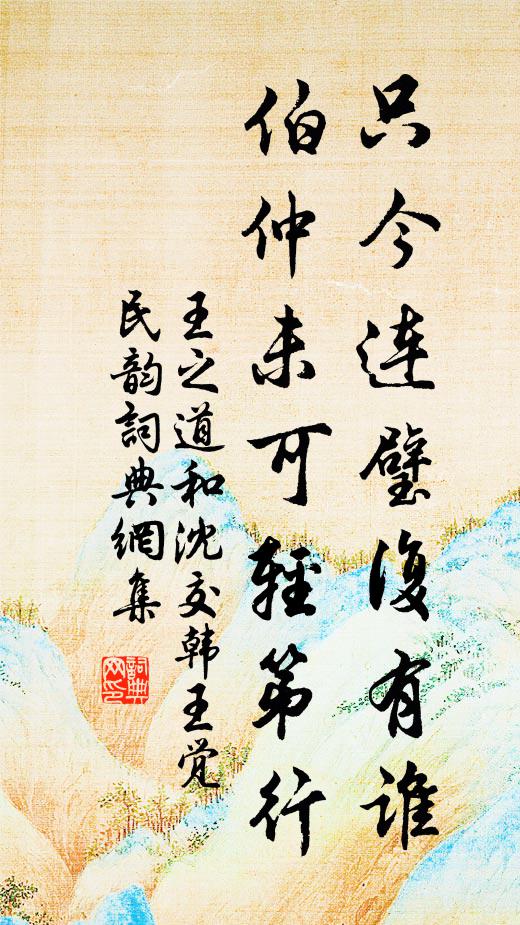 只今连璧復有谁
伯仲未可轻第行
王之道和沈文韩王觉
民韵詞典網集
詞典
网印